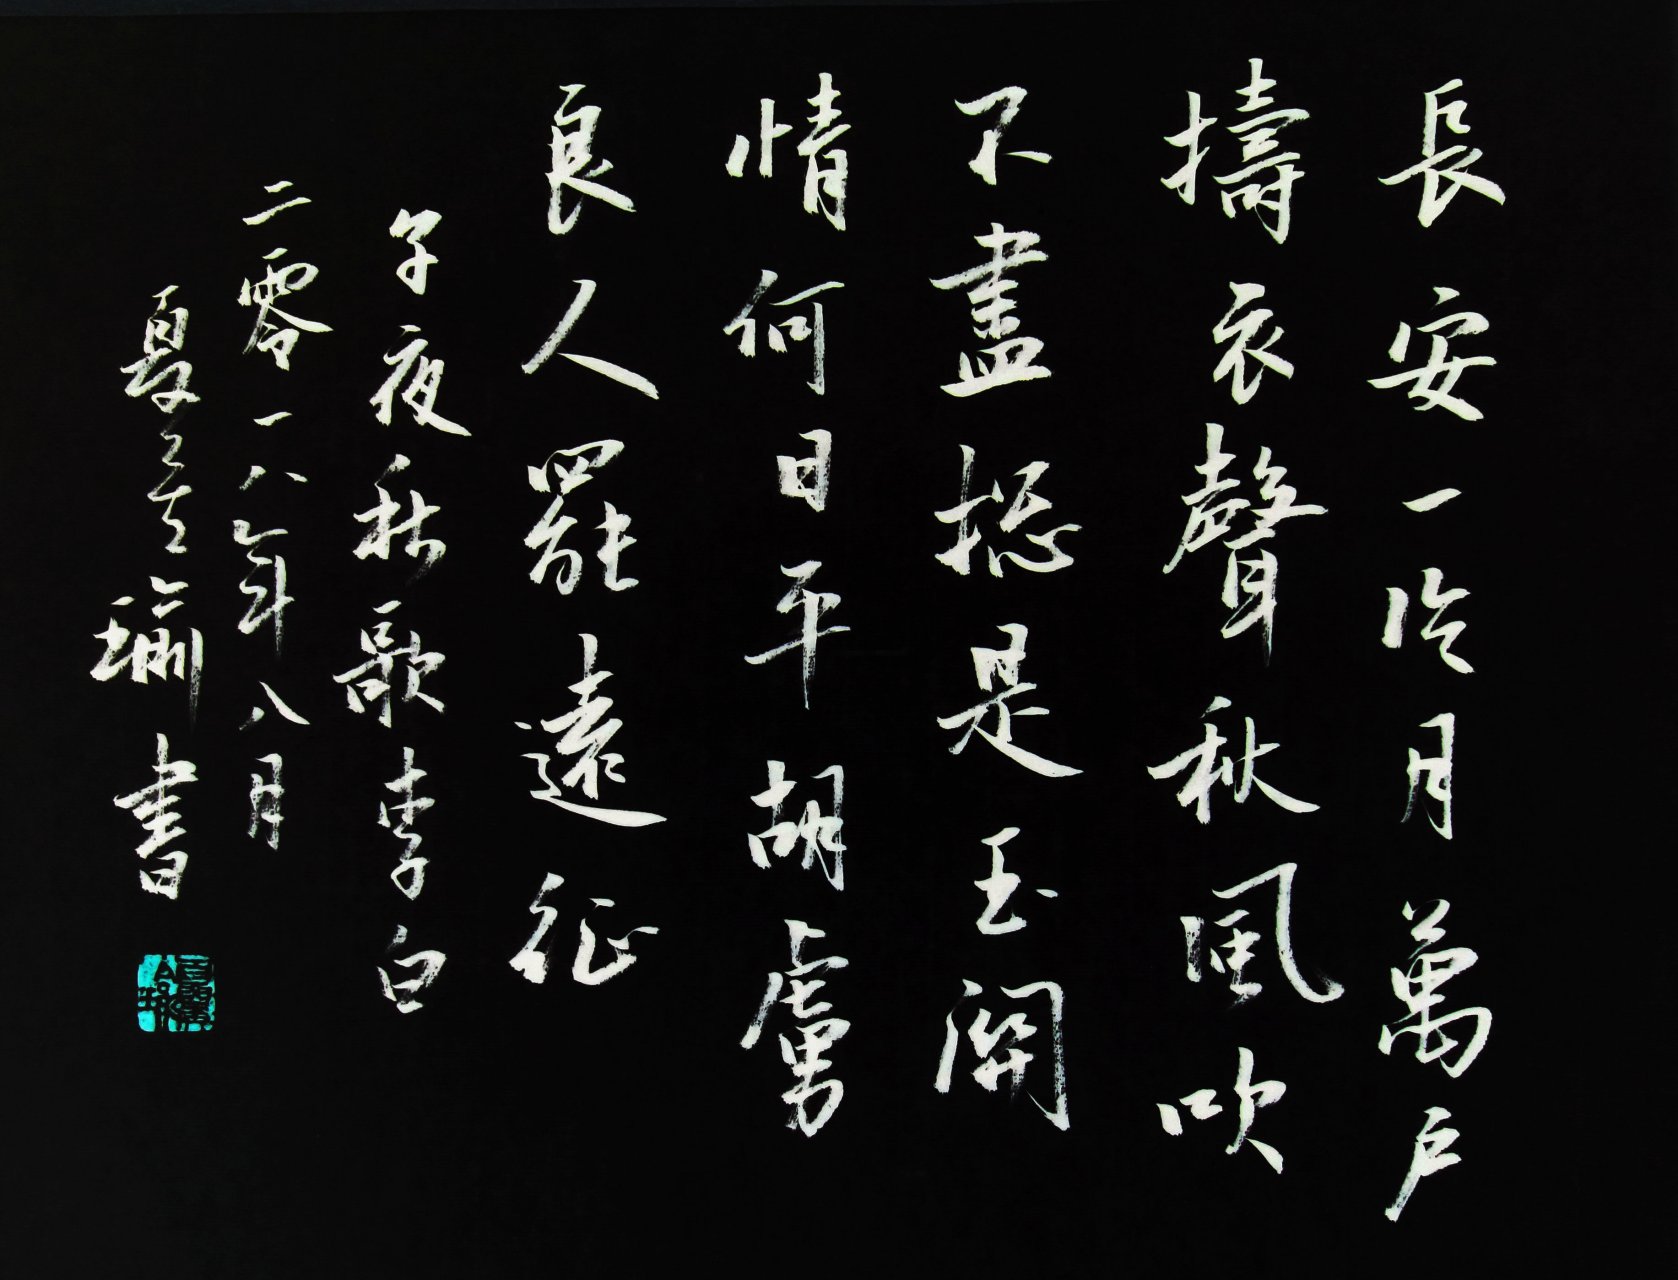 長安一冷月萬戶
擣衣聲秋風吹
不盡摠是玉關
情何日平胡虜
良人罷遠征
子夜秋歌李白
二零一八年八月
夏瑜書